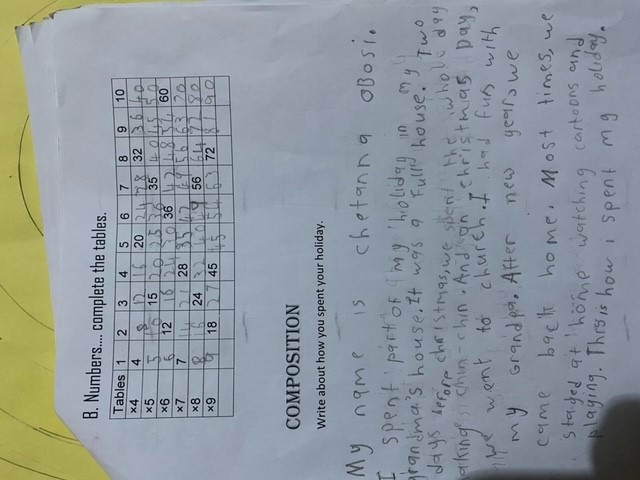 B. Numbers.... complete the tables.
Tables 1 2 3 4 5 6 7 8 9 10
×4 4 8 12 16 20 24 28 32 36 40
×5 5 10 15 20 25 30 35 40 45 50
×6 6 12 18 24 30 36 42 48 54 60
×7 7 14 21 28 35 42 49 56 63 70
×8 8 16 24 32 40 48 56 64 72 80
×9 9 18 27 45 45 54 63 72 81 90
COMPOSITION
Write about how you spent your holiday.
My name is chetanna obosi.
I spent part of my holiday in my
grandma's house. It was a full house. Two
days before christmas, we spent the whole day
aking chin-chin. And on christmas Day,
we went to church. I had fun with
my Grandpa. After new year, we
came back home. Most times, we
stayed at home watching cartoons and
playing. This is how i spent my holiday.